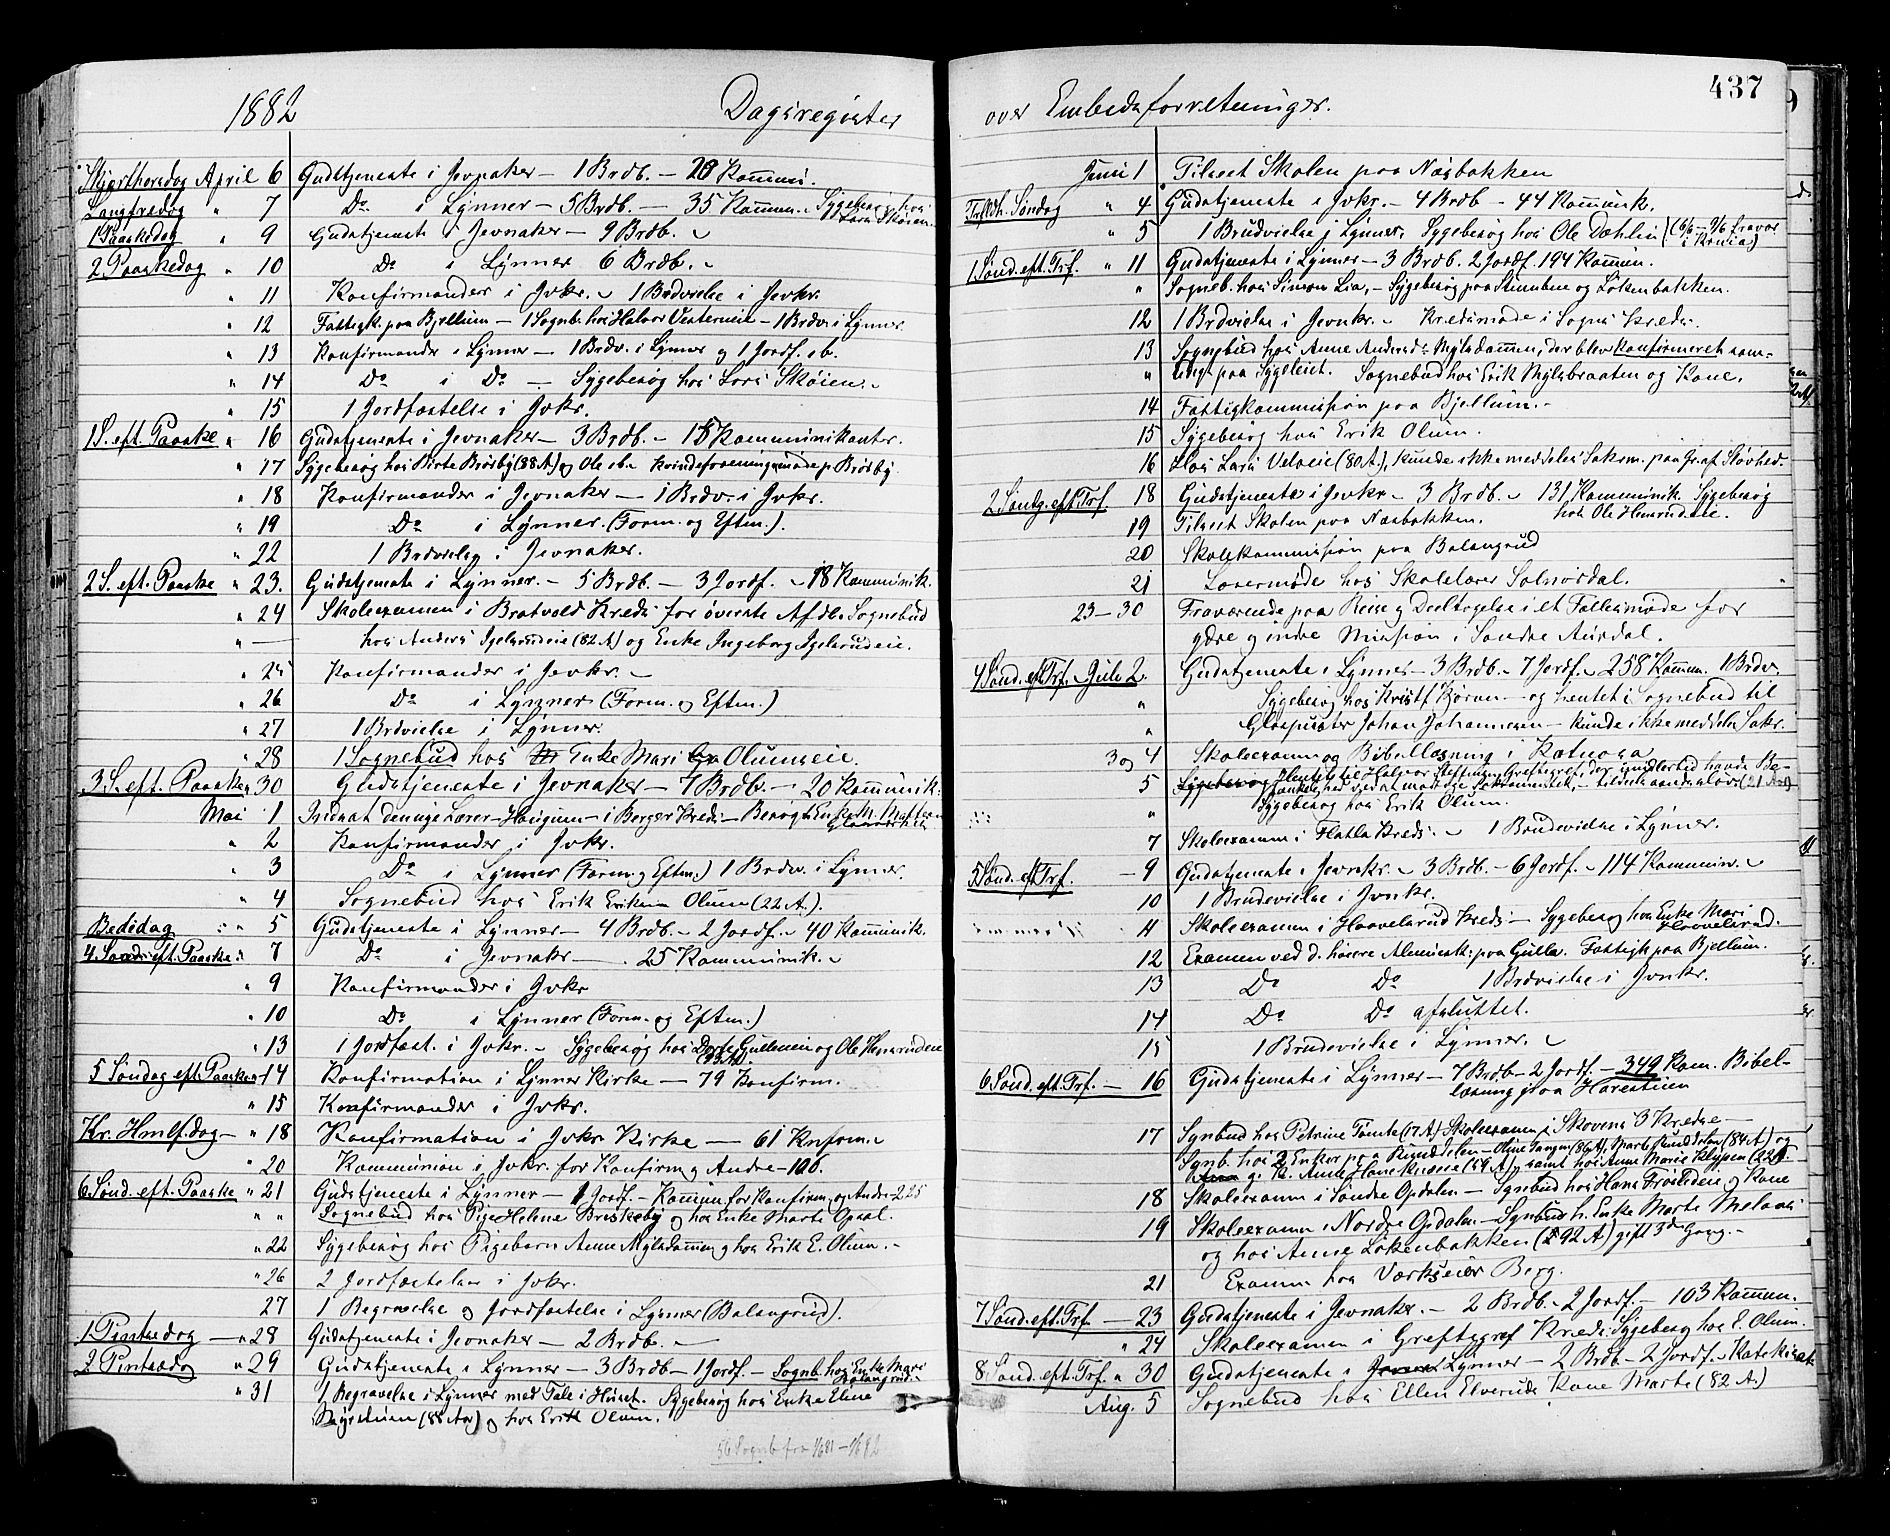 1882 Dagsregister
Skjærthorsdag April 6 Gudstjeneste i Jevnaker — 1 Brdb. — 20 Kommun.
Langfredag " 7 Do i Lynner — 5 Brdb. — 35 Kommun. Sygebesøg hos Lars Skøien.
1 Paaskedag " 9 Gudstjeneste i Jevnaker — 9 Brdb.
2 Paaskedag " 10 Do i Lynner 6 Brdb.
" 11 Konfirmander i Jvkr. — 1 Brdvielse i Jevkr.
" 12 Fattigk. paa Bjellum — 1 Sognb. hos Halvor Vestereneie — 1 Brdv. i Lynner
" 13 Konfirmander i Lynner — 1 Brdv. i Lynner og 1 Jordf. sb.
" 14 Do i Do — Sygebesøg hos Lars Skøien.
" 15 1 Jordfæstelse i Jvkr.
1 S. eft. Paaske " 16 Gudstjeneste i Jevnaker — 3 Brdb. — 15 Kommunikanter.
" 17 Sygebesøg hos Birte Brørby (88 A) og Ole sb. Kvindeforeningsmøde p. Brørby
" 18 Konfirmander i Jevnaker — 1 Brdv. i Jvkr.
" 19 Do i Lynner. (Form. og Eftm.).
" 22 1 Brdvielse i Jevnaker.
2 S. eft. Paaske " 23. Gudstjeneste i Lynner. — 5 Brdb. — 3 Jordf. — 18 Kommunik.
" 24 Skoleexamen i Bratvold Kreds for øverste Afdl. Sognebud
" — hos Anders Igelsrudeie (82 A) og Enke Ingeborg Igelsrudeie.
" 25 Konfirmander i Jevkr.
" 26 Do i Lynner (Form. og Eftm.)
" 27 1 Brdvielse i Lynner.
" 28 1 Sognebud hos Enke Mari Olumseie.
3 S. eft. Paaske " 30 Gudstjeneste i Jevnaker — 7 Brdb. — 20 Kommunik.
Mai 1 Indsat den nye Lærer — Haugum — i Berger Kreds —
" 2 Konfirmander i Jvkr.
" 3 Do i Lynner (Form. og Eftm.) 1 Brdv. i Lynner.
" 4 Sognebud hos Erik Eriksen Olum (22 A.).
Bededag " 5 Gudstjeneste i Lynner — 4 Brdb. — 2 Jordf. — 40 Kommunik.
4. Sønd. eft. Paaske " 7 Do i Jevnakr — 25 Kommunik.
" 9 Konfirmander i Jvkr
" 10 Do i Lynner (Form. og Eftm.)
" 13 1 Jordfæst. i Jvkr. — Sygebesøg hos Dorte Gulleneie og Ole Hensrudeie
5 Søndag eft. Paaske " 14 Konfirmation i Lynner Kirke — 79 Konfirm.
" 15 Konfirmander i Jvkr.
Kr. Hmlf. dag — " 18 Konfirmation i Jvkr Kirke — 61 Knform.
" 20 Kommunion i Jvkr. for Konfirm. og Andre — 106.
6. Sønd. eft. Paaske " 21 Gudstjeneste i Lynner — 1 Jordf. — Kommun. for Konfirm. og Andre 225
" " Sognebud hos Pige Helene Briskeby og hos Enke Marte Opsal.
" 22 Sygebesøg hos Pigebarn Anne Mylsdammen og hos Erik E. Olum. —
" 26 2 Jordfæstelser i Jvkr.
27 1 Begravelse og Jordfæstelse i Lynner (Balangrud).
1 Pintsedag — " 28 Gudstjeneste i Jevnaker — 2 Brdb.
2 Pintsedag " 29 Gudstjeneste i Lynner — 3 Brdb — 1 Jordf. — Sognb. hos Enke Mari Balangrud
" 31 1 Begravelse i Lynner med Tale i Huset. Sygebesøg hos Enke Eline
og hos Erik Olum.
56 Sognb fra 1/6 81 — 1/6 82
437
over Embedsforretninger.
Juni 1 Tilseet Skolen paa Næsbakken
Trfldh. Søndag " 4 Gudstjeneste i Jvkr. — 4 Brdb — 44 Kommunik.
" 5 1 Brudvielse i Lynner. Sygebesøg hos Ole Dæhlin (6/6 — 9/6 fravær
1 Sønd. eft. Trf. " 11 Gudstjeneste i Lynner — 3 Brdb. 2 Jordf. 194 Kommun.
" Sogneb. hos Simon Lia, — Sygebesøg paa Stumbne og Løkenbakken.
12 1 Brdvielse i Jevnkr. — Kredsmøde i Sogns Kreds.
13 Sognebud hos Anne Andersd. Mylsdammen, der blev konfirmeret sam-
" tidigt paa Sygeleiet. Sognebud hos Erik Mylsbraaten og Kone.
14 Fattigkommission paa Bjellum. —
15 Sygebesøg hos Erik Olum.
16 Hos Lars Velseie (80 A), kunde ikke meddeles Sakrm. paa Gr. af Sløvhed.
2 Søndg. eft. Trf. 18 Gudstjeneste i Jevkr — 3 Brdb. — 131 Kommunik. Sygebesøg hos Ole Hensrudeie.
19 Tilseet Skolen paa Næsbakken.
20 Skolekommission paa Balangrud
21 Lærermøde hos Skolelærer Solnørdal.
23 — 30 Fraværende paa Reise og Deeltagelse i et Fællesmøde for
ydre og indre Mission i Søndre Aurdal.
4 Sønd. eft. Trf. Juli 2. Gudstjeneste i Lynner — 3 Brdb — 7 Jordf. — 258 Kommun. 1 Brdv.
" Sygebesøg hos — og hentet i Sognebud til
" Glaspuster Johan Johannesen — kunde ikke meddeles Sakr.
3 og 4 Skoleexamen og Bibellæsning i Katnosa
5 Sygebesøg Hentet til Halvor Steffensen Greftegref, der imidlertid havde Be-
" Sygebesøg hos Erik Olum.
7 Skoleexamen i Flatla Kreds. — 1 Brudevielse i Lynner.
5 Sønd. eft Trf. — 9 Gudstjeneste i Jevnkr. — 3 Brdb. — 6 Jordf. — 114 Kommun.
10 1 Brudevielse i Jvnkr.
11 Skoleexamen i Haavelsrud Kreds — Sygebesøg hos Enke Mari Haavelsrud.
12 Examen ved d. høiere Almuesk. paa Gulla. Fattigk. paa Bjellum.
13 Do Do 1 Brdvielse i Jvnkr.
14 Do Do afsluttet.
15 1 Brudevielse i Lynner.
6 Sønd. eft. Trf. — 16 Gudstjeneste i Lynner — 7 Brdb — 2 Jordf. — 349 Kom. Bibel-
læsning paa Harestuen
17 Sgnbud hos Petrine Tømte (17 A) Skoleexamen i Skovens 3 Kredse —
Sgnb. hos 2 Enker paa
samt hos Anne Marie Klypen
18 Skoleexamen i Søndre Opdalen — Sgnbud hos Hans Frøslideie og Kone
19 Skoleexamen i Nordre Opdalen — Sgnbud h. Enke Marte
og hos Anne Løkenbakken (92 A) gift 3de Gang. —
21 Examen hos Værkseier Berg.
7 Sønd. eft. Trf. — 23 Gudstjeneste i Jevnaker. — 2 Brdb. — 2 Jordf. — 103 Kommun.
" 24 Skoleexamen i Greftegref Kreds. Sygebesøg hos E. Olum.
8 Sønd. eft. Trf. " 30 Gudstjeneste i Lynner — 2 Brdb — 2 Jordf.
Aug. 5 Sognebud hos Ellen Elvesruds Kone Marte (82 A)